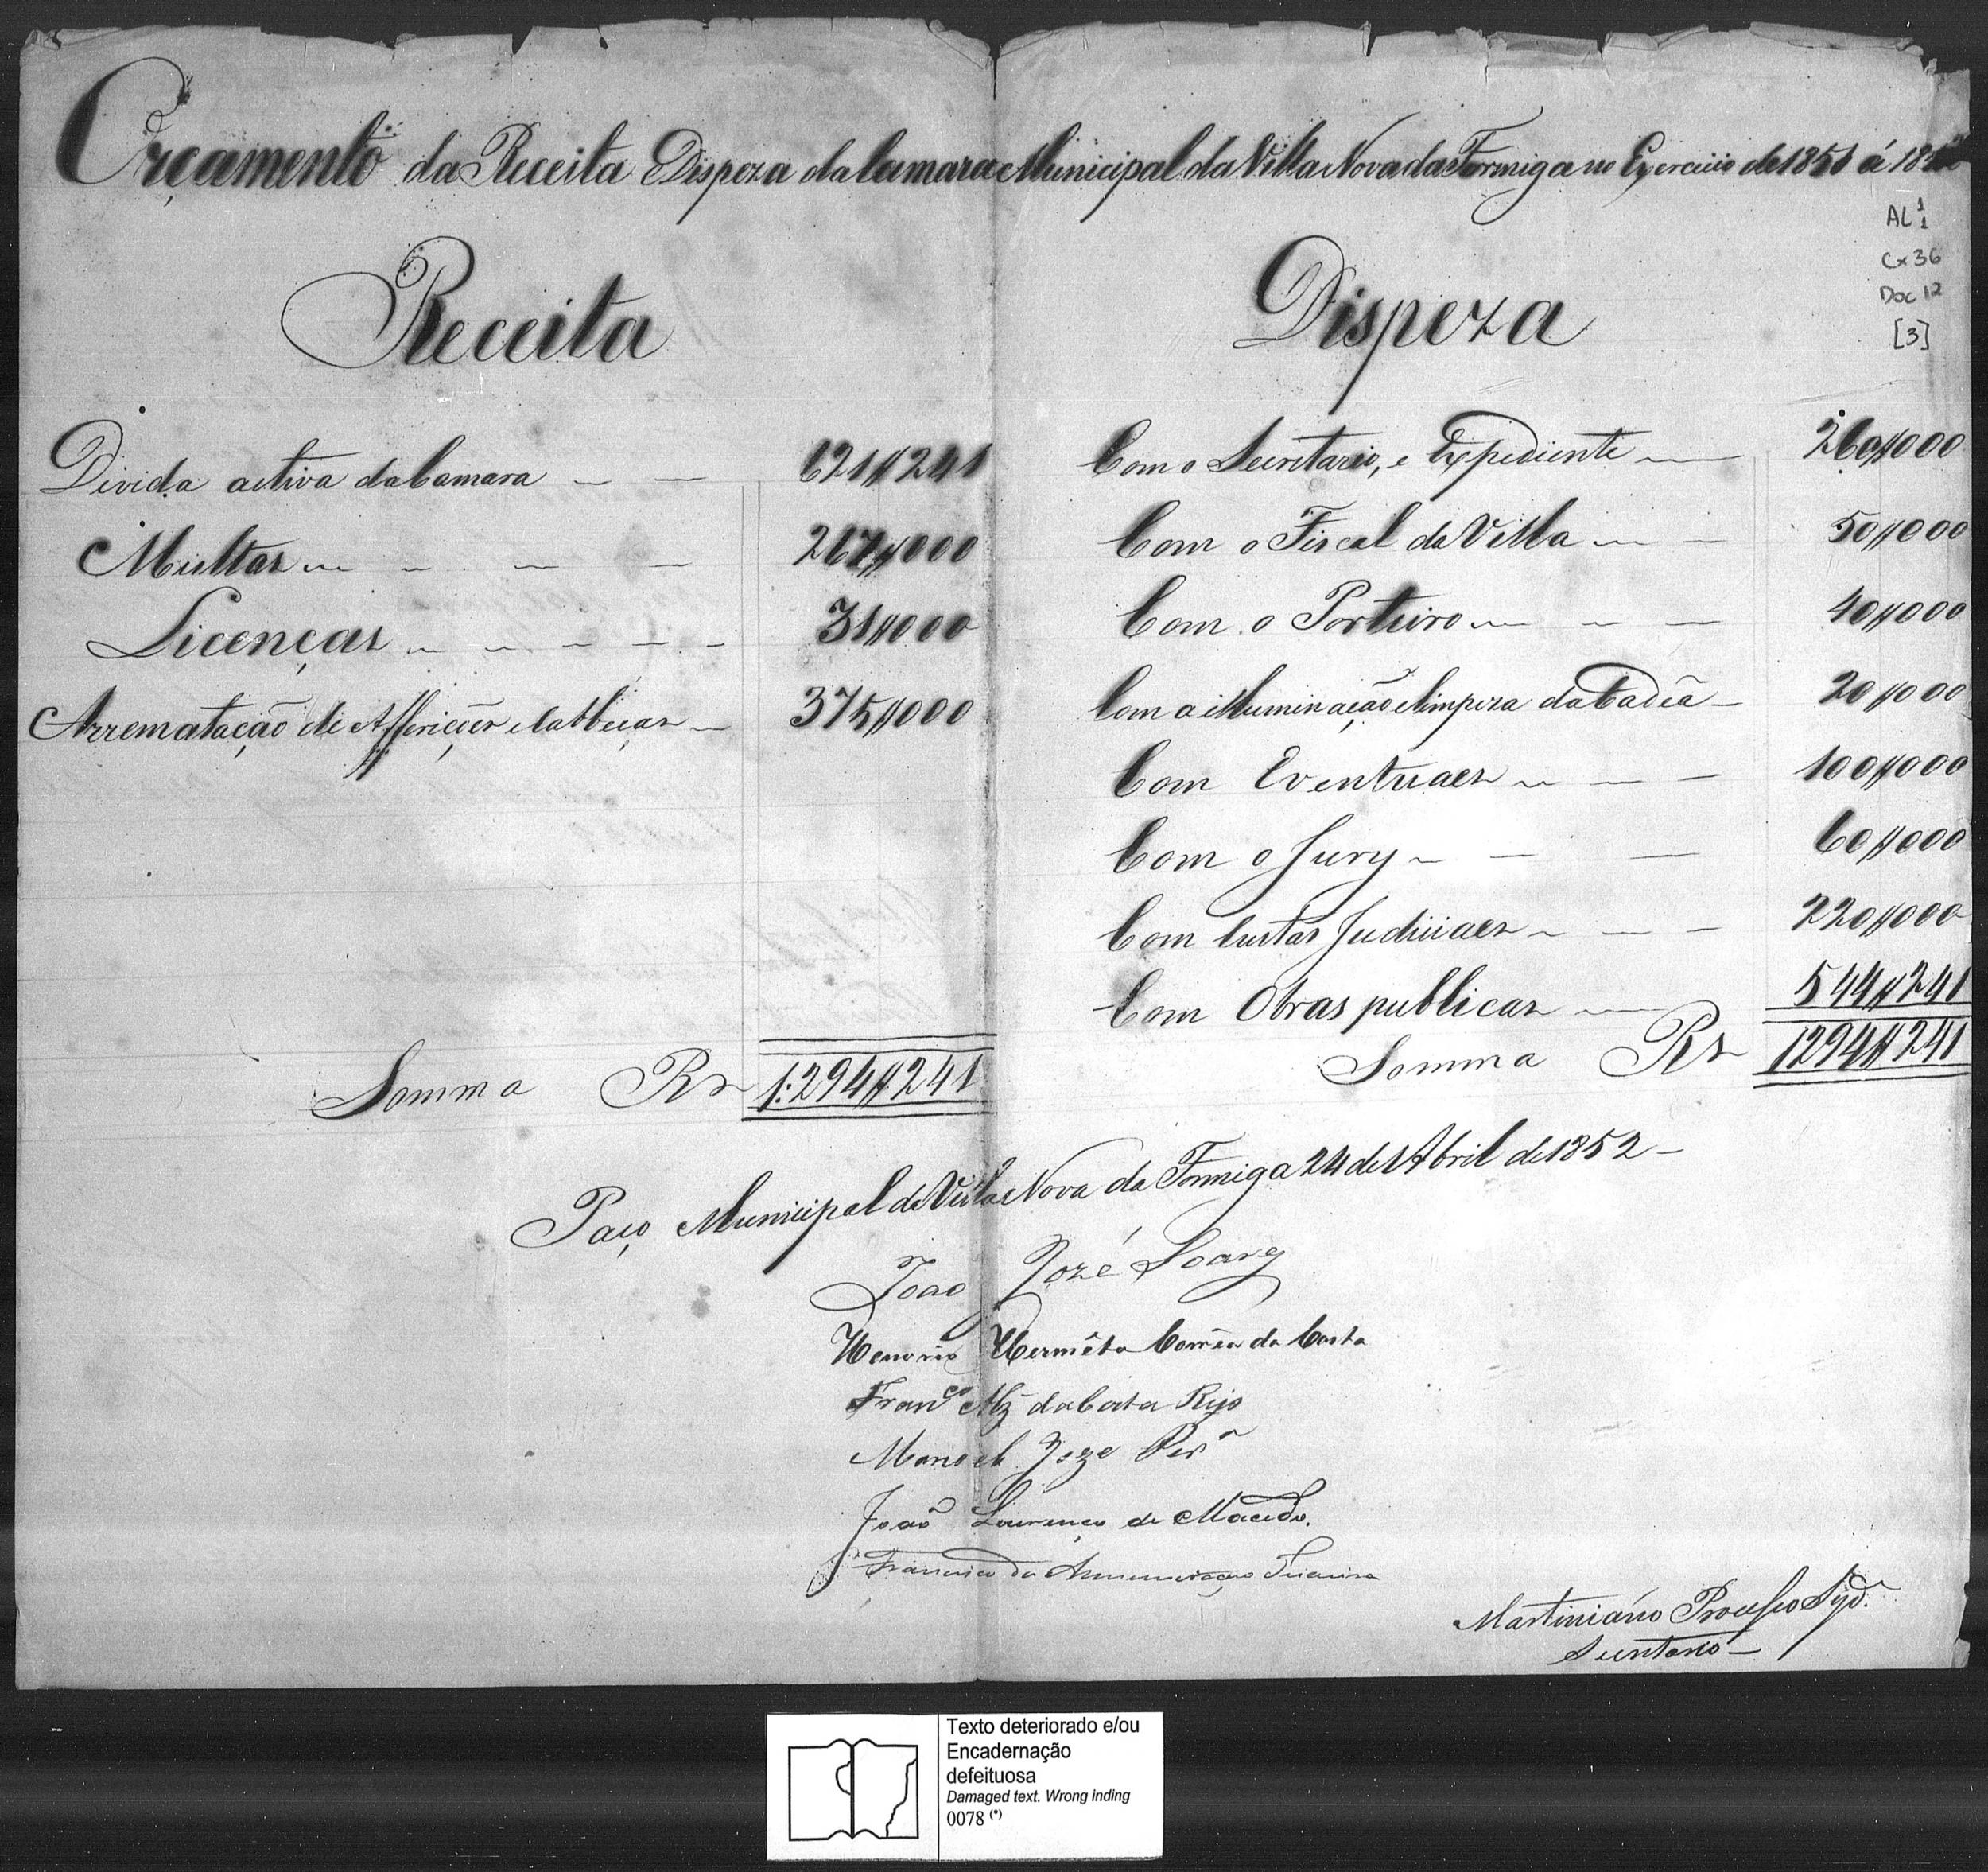 Orçamento da Receita e Dispeza da Camara Municipal da Villa Nova da Formiga no Exercicio de 1851 á 1852
AL 1 1
Cx 36
Doc 12
[3]
Receita
Divida activa da Camara 621$241
Multas 267$000
Licenças 31$000
Arrematação de Afferições e Cabbeças 375$000
Somma Rs 1:294$241
Dispeza
Com o Secretario, e Expediente 260$000
Com o Fiscal da Villa 50$000
Com o Porteiro 40$000
Com a illuminação e limpeza da Cadêa 20$000
Com Eventuaes 100$000
Com o Jury 60$000
Com Custas Judiciaes 220$000
Com Obras publicas 544$241
Somma Rs 1294$241
Paço Municipal da Villa Nova da Formiga 24 de Abril de 1852
Joao Jozé Soares
Honorio Hermêto Corrêa da Costa
Franco Alz da Costa Rijo
Manoel Joze Pera
João Lourenço de Macedo.
Francisco da Teixeira
Martiniáno
Secretario
Texto deteriorado e/ou
Encadernação
defeituosa
Damaged text. Wrong inding
0078 (*)